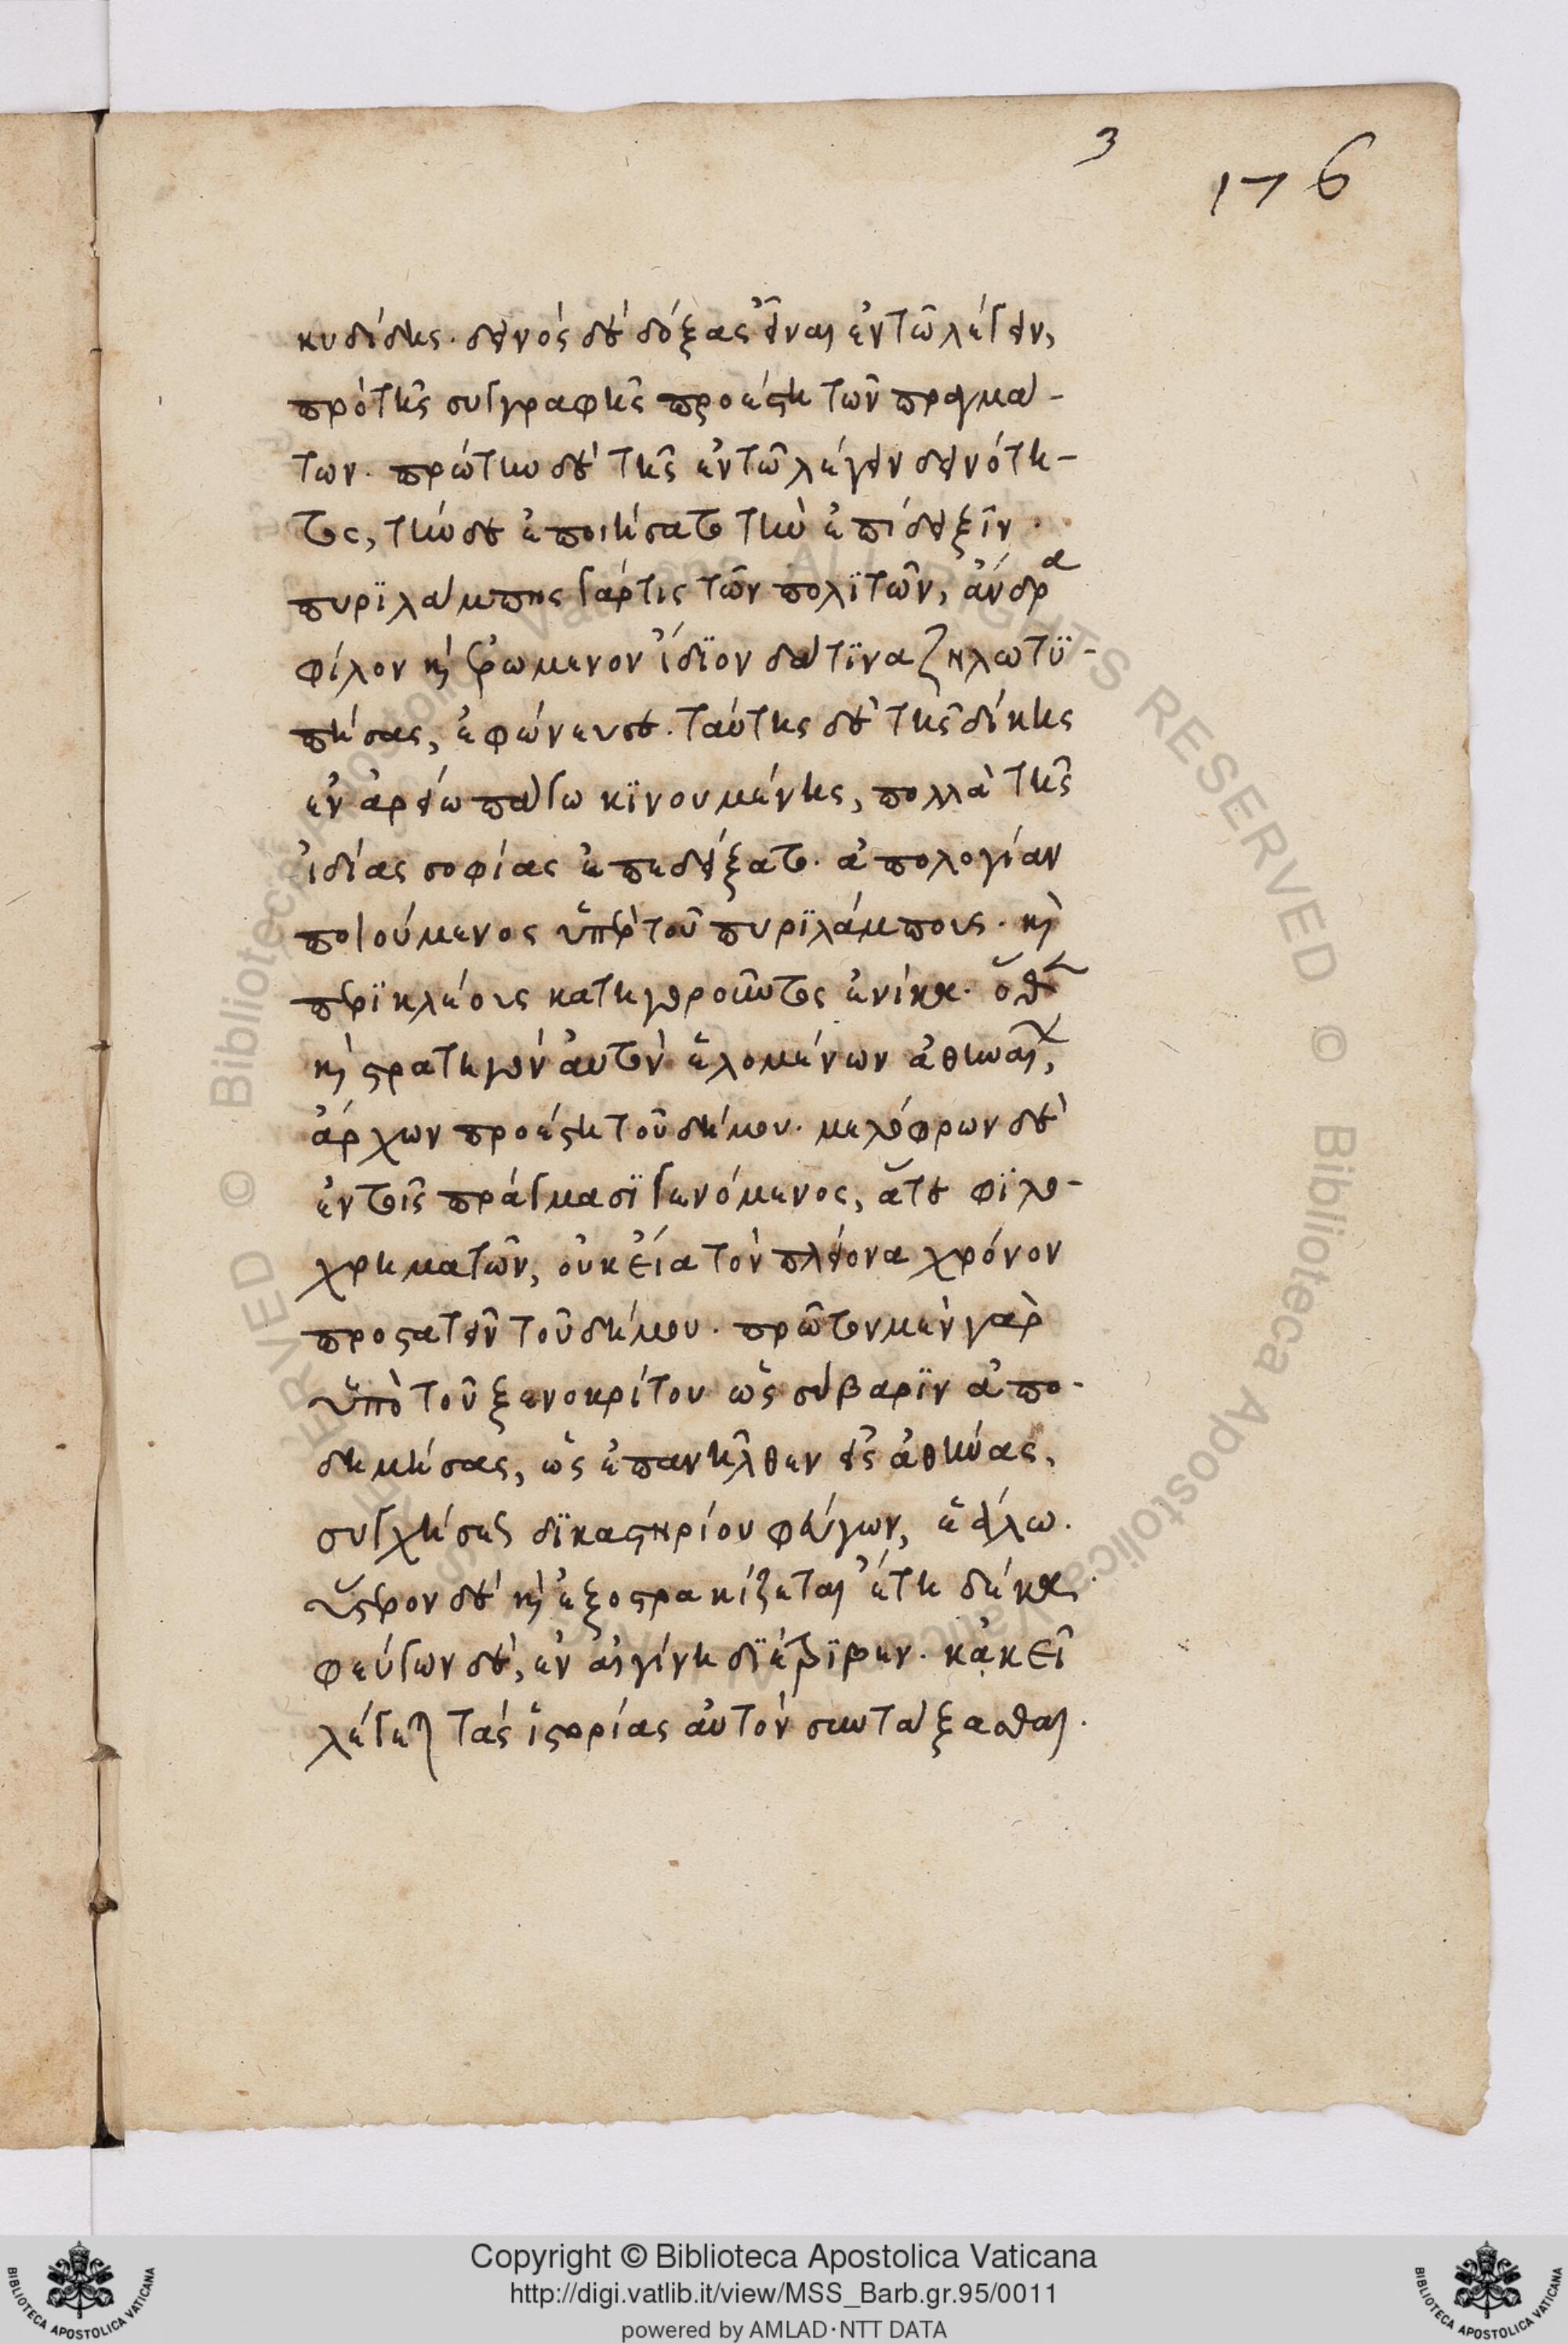 3
176
κυδίδης. δεινὸς δὲ δόξας εἶναι ἐν τῶ λέγειν,
πρὸ τῆς συγγραφῆς προέστη τῶν πραγμά-
των. πρώτην δὲ τῆς ἐν τῶ λέγειν δεινότη-
τος, τήνδε ἐποιήσατο τὴν ἐπίδειξϊν.
πυρϊλάμπης γάρ τις τῶν πολϊτῶν, ἄνδρα
φίλον κὶ ἐρώμενον ἴδϊον διά τϊνα ζηλωτϋ-
πήσας, ἐφώνευσε. ταύτης δὲ τῆς δίκης
ἐν ἀρείω πάγω κϊνουμένης, πολλὰ τῆς
ἰδίας σοφίας ἐπεδείξατο. ἀπολογίαν
ποιούμενος ὑπὲρ τοῦ πυρϊλάμπους. κὶ
περϊκλέους κατηγοροῦντος ἐνίκα. ὅθεν
κὶ στρατηγὸν αὐτὸν ἑλομένων ἀθηναίων,
ἄρχων προέστη τοῦ δήμου. μεγαλόφρων δὲ
ἐν τοῖς πράγμασϊ γενόμενος, ἅτε φϊλο-
χρηματῶν, οὐκ εἴα τὸν πλείονα χρόνον
προστατεῖν τοῦ δήμου. πρῶτον μὲν γὰρ
ὑπὸ τοῦ ξενοκρίτου ὡς σύβαρϊν ἀπο-
δημήσας, ὡς ἐπανῆλθεν εἰς ἀθήνας,
συγχήσεως δϊκαστηρίου φεύγων, ἑάλω.
ὕστερον δὲ κὶ ἐξοστρακίζεται ἔτη δέκα.
φεύγων δὲ, ἐν αἰγίνη δϊέτρϊβεν. κἀκεῖ
λέγεται τὰς ἱστορίας αὐτὸν συντάξασθαι.
© Biblioteca Apostolica Vaticana ALL RIGHTS RESERVED © Biblioteca Apostolica Vaticana
Copyright © Biblioteca Apostolica Vaticana
http://digi.vatlib.it/view/MSS_Barb.gr.95/0011
powered by AMLAD·NTT DATA
BIBLIOTECA APOSTOLICA VATICANA
BIBLIOTECA APOSTOLICA VATICANA